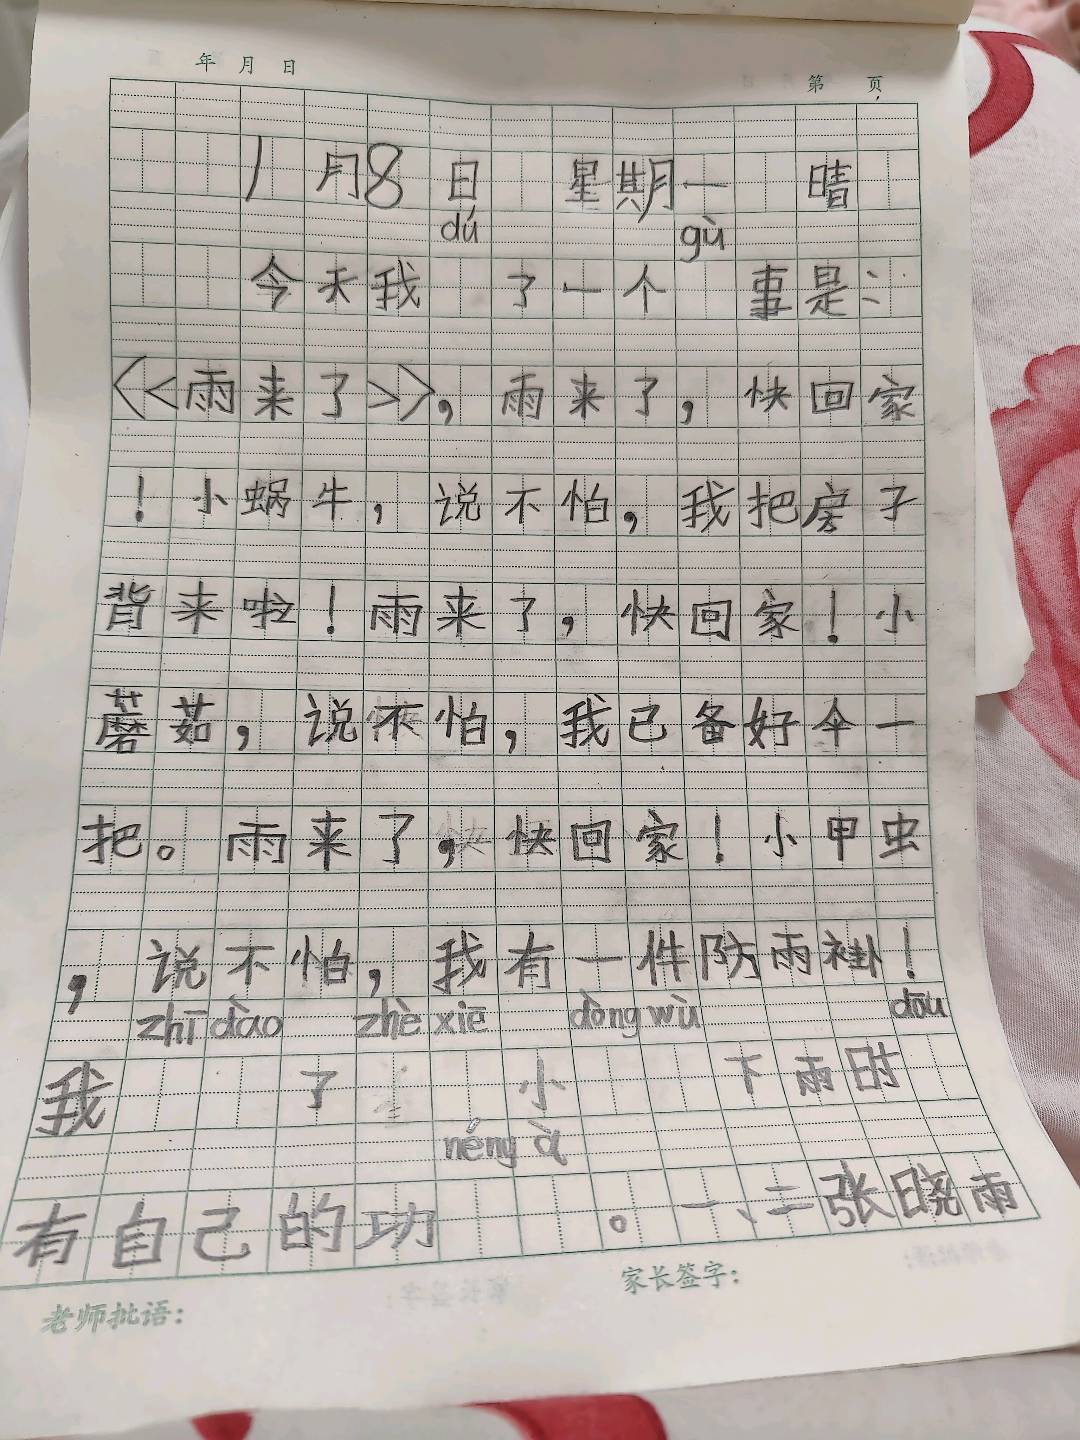 年 月 日
第 页
1月8日 星期一 晴
dú gù
今天我 了一个 事是：
《雨来了》，雨来了，快回家
！小蜗牛，说不怕，我把房子
背来啦！雨来了，快回家！小
蘑茹，说不怕，我已备好伞一
把。雨来了，快回家！小甲虫
，说不怕，我有一件防雨褂！
zhī dào zhè xiē dòng wù dōu
我 了 小 下雨时
néng
有自己的功 。一、二张晓雨
家长签字：
老师批语：